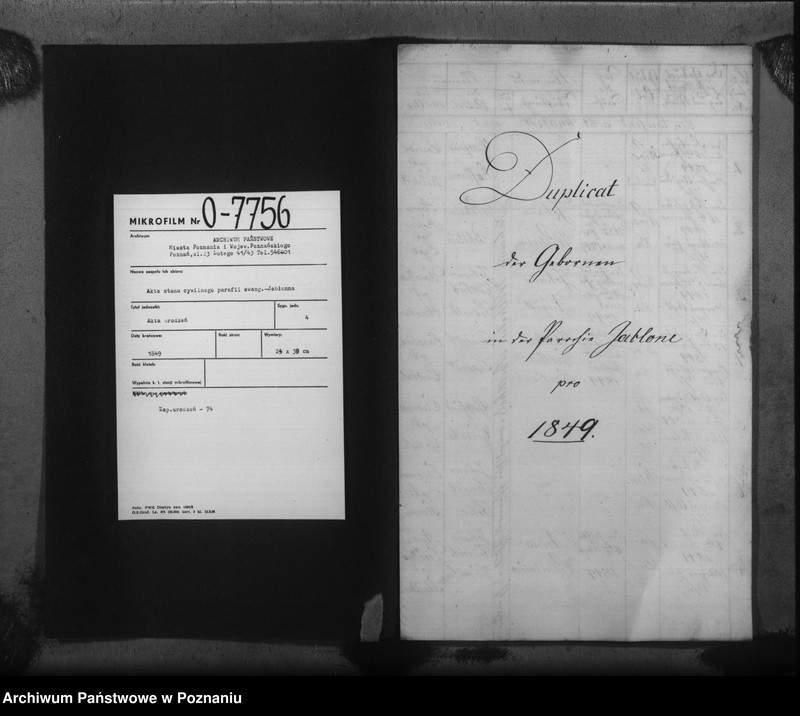 MIKROFILM Nr O-7756
Archiwum
ARCHIWUM PAŃSTWOWE
Miasta Poznania i Wojew.Poznańskiego
Poznań,ul.23 Lutego 41/43 Tel.546-01
Nazwa zespołu lub zbioru:
Akta stanu cywilnego parafii ewang.-Jabłonna
Tytuł jednostki:
Sygn. jedn.
Akta urodzeń
4
Daty krańcowe:
Ilość stron:
Wymiary:
1849
x 38 cm
Ilość klatek:
Wypełnia k. t. stacji mikrofilmowej
Zap.urodzeń - 74
Duplicat
der Gebornen
in der Parochie Jablone
pro
1849.
Archiwum Państwowe w Poznaniu